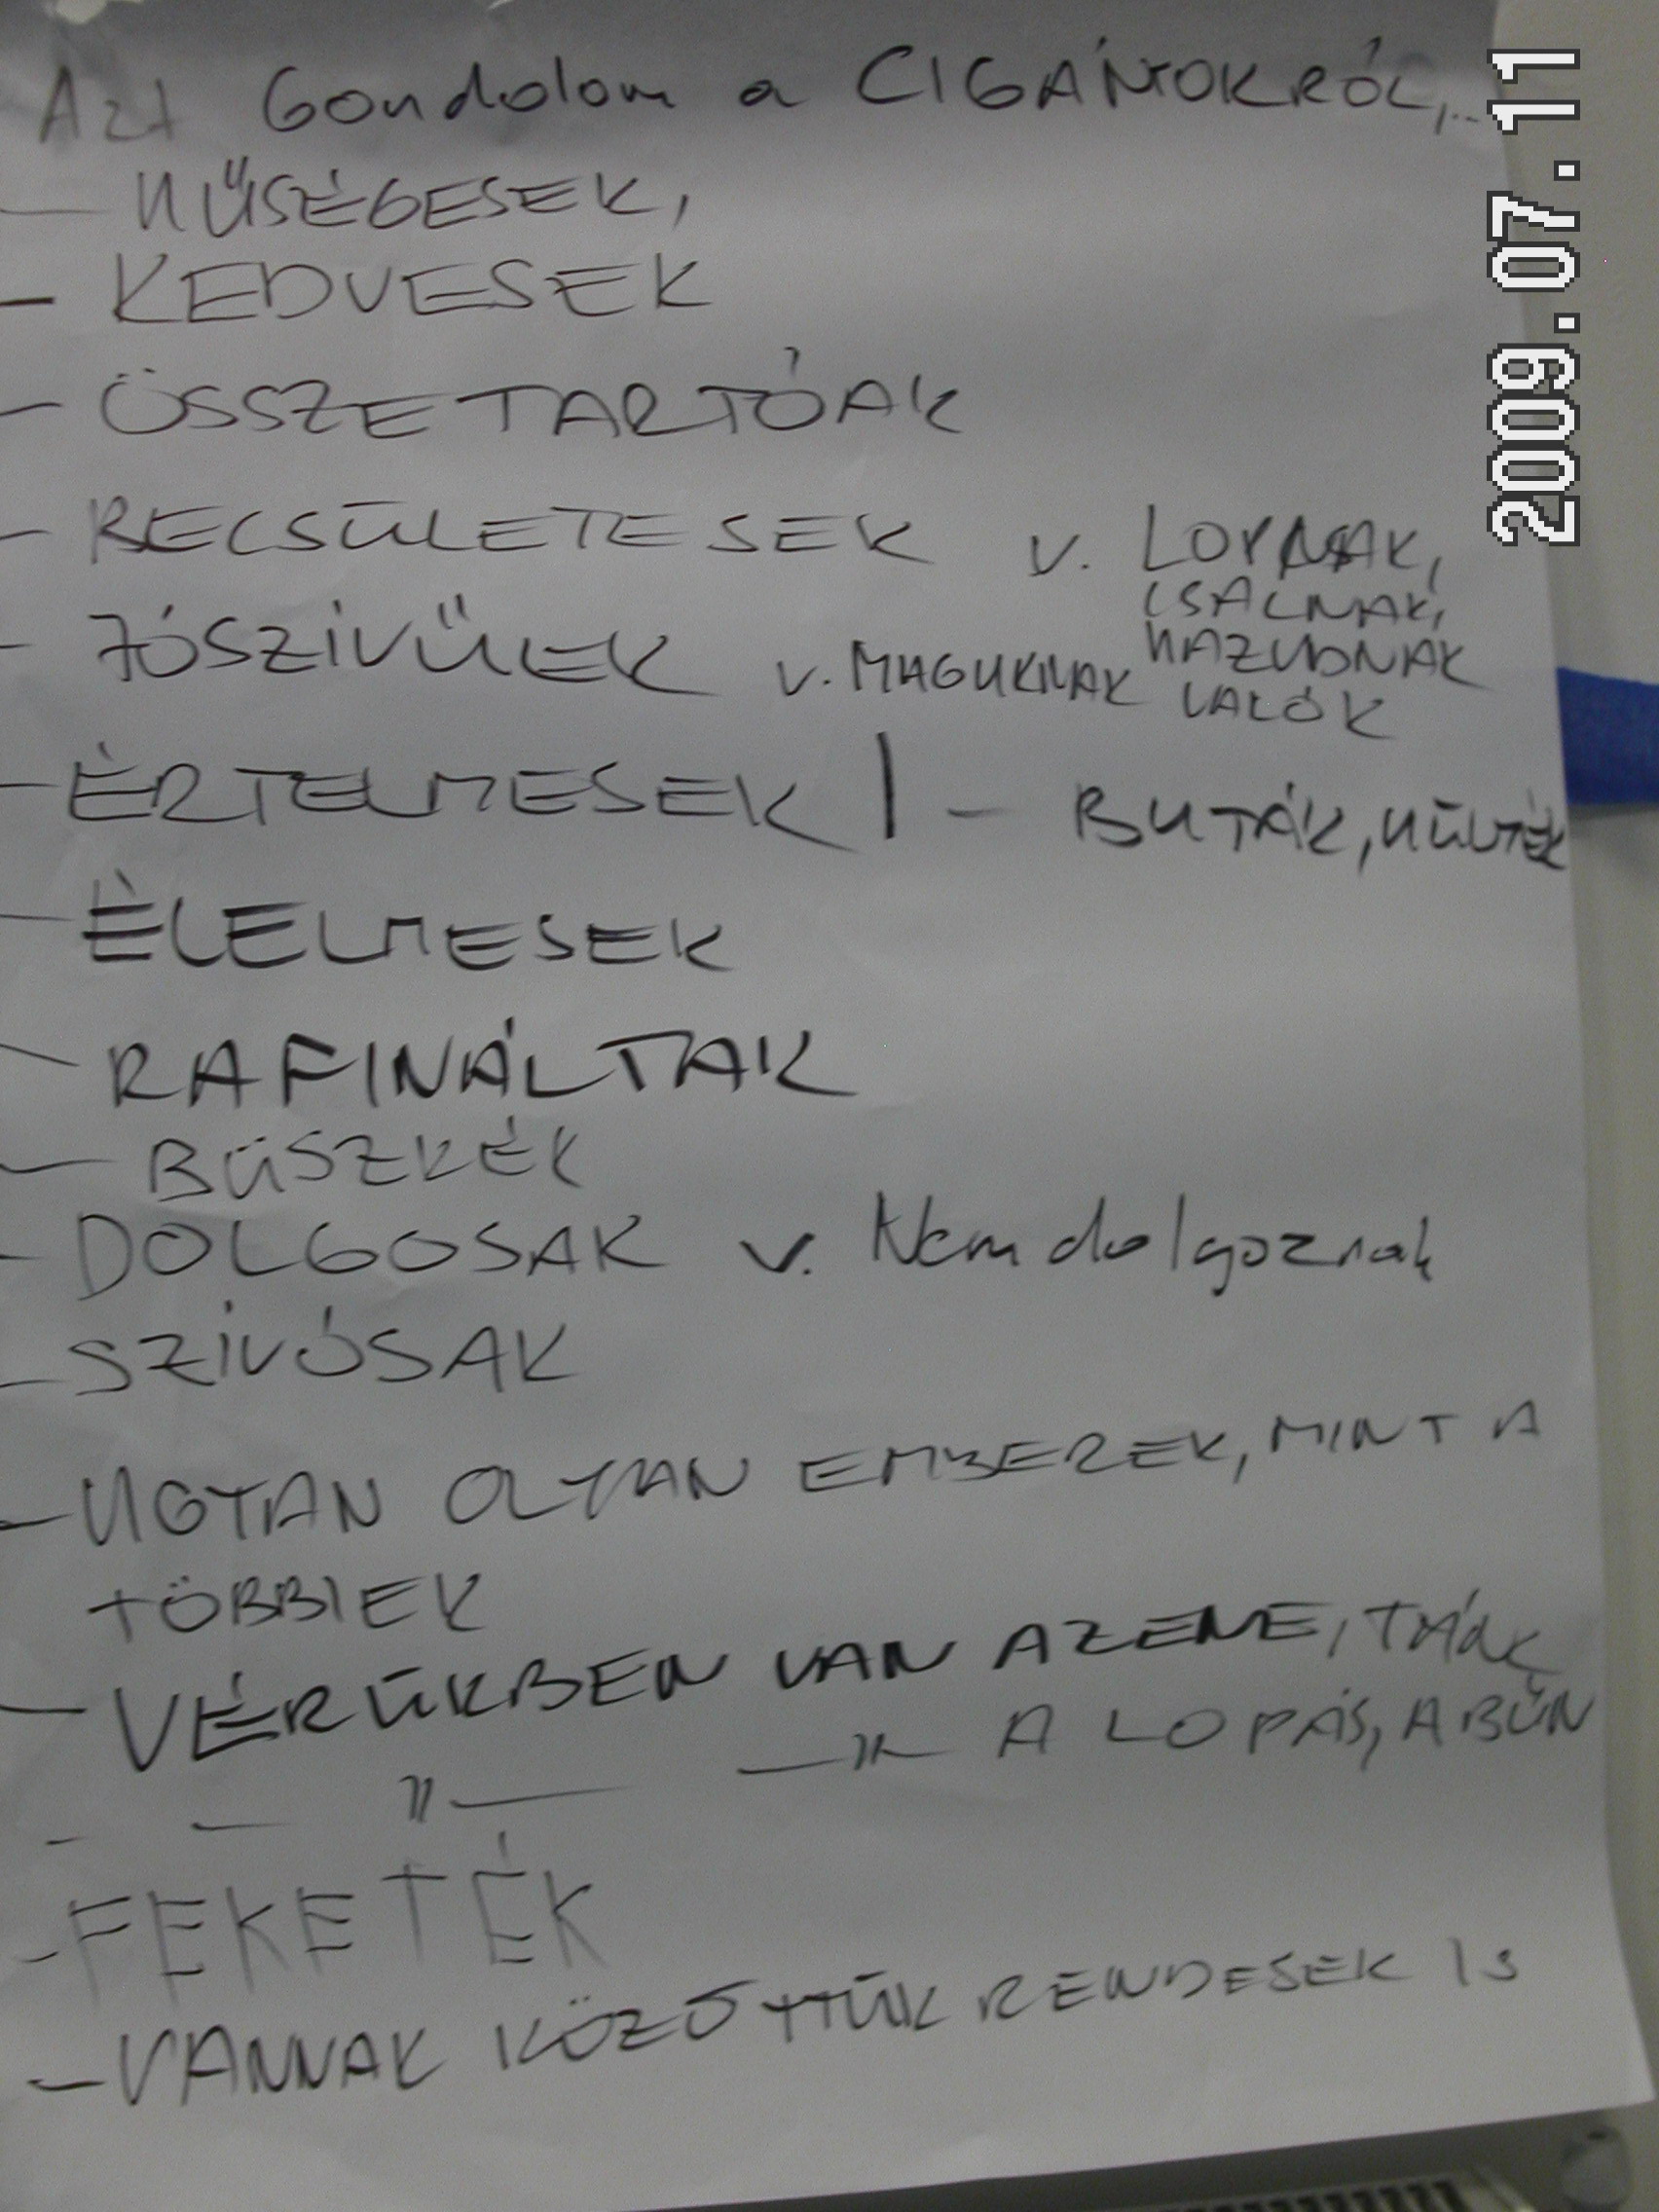 Azt Gondolom a CIGÁNYOKRÓL,...
- HŰSÉGESEK,
- KEDVESEK
- ÖSSZETARTÓAK
- BECSÜLETESEK v. LOPNAK,
CSALNAK,
HAZUDNAK
- JÓSZÍVŰEK v. MAGUKNAK VALÓK
- ÉRTELMESEK | - BUTÁK, HŰLYÉK
- ÉLELMESEK
- RAFINÁLTAK
- BÜSZKÉK
- DOLGOSAK v. Nem dolgoznak
- SZÍVÓSAK
- UGYAN OLYAN EMBEREK, MINT A
TÖBBIEK
- VÉRÜKBEN VAN A ZENE, TÁNC
- — " — — " — A LOPÁS, A BŰN
- FEKETÉK
- VANNAK KÖZÖTTÜK RENDESEK IS
2009.07.11